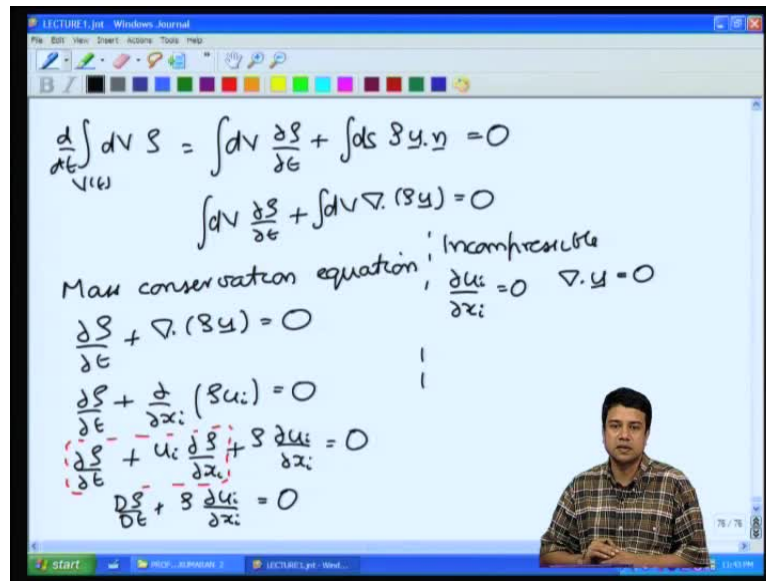 LECTURE1.jnt - Windows Journal
File Edit View Insert Actions Tools Help
d/dt ∫_V(t) dV ρ = ∫dV ∂ρ/∂t + ∫dS ρu.n = 0
∫dV ∂ρ/∂t + ∫dV ∇.(ρu) = 0
Mass conservation equation
∂ρ/∂t + ∇.(ρu) = 0
∂ρ/∂t + ∂/∂xi (ρui) = 0
∂ρ/∂t + ui ∂ρ/∂xi + ρ ∂ui/∂xi = 0
Dρ/Dt + ρ ∂ui/∂xi = 0
Incompressible
∂ui/∂xi = 0 ∇.u = 0
76 / 76
start PROF...KUMARAN 2 LECTURE1.jnt - Wind... 11:43 PM